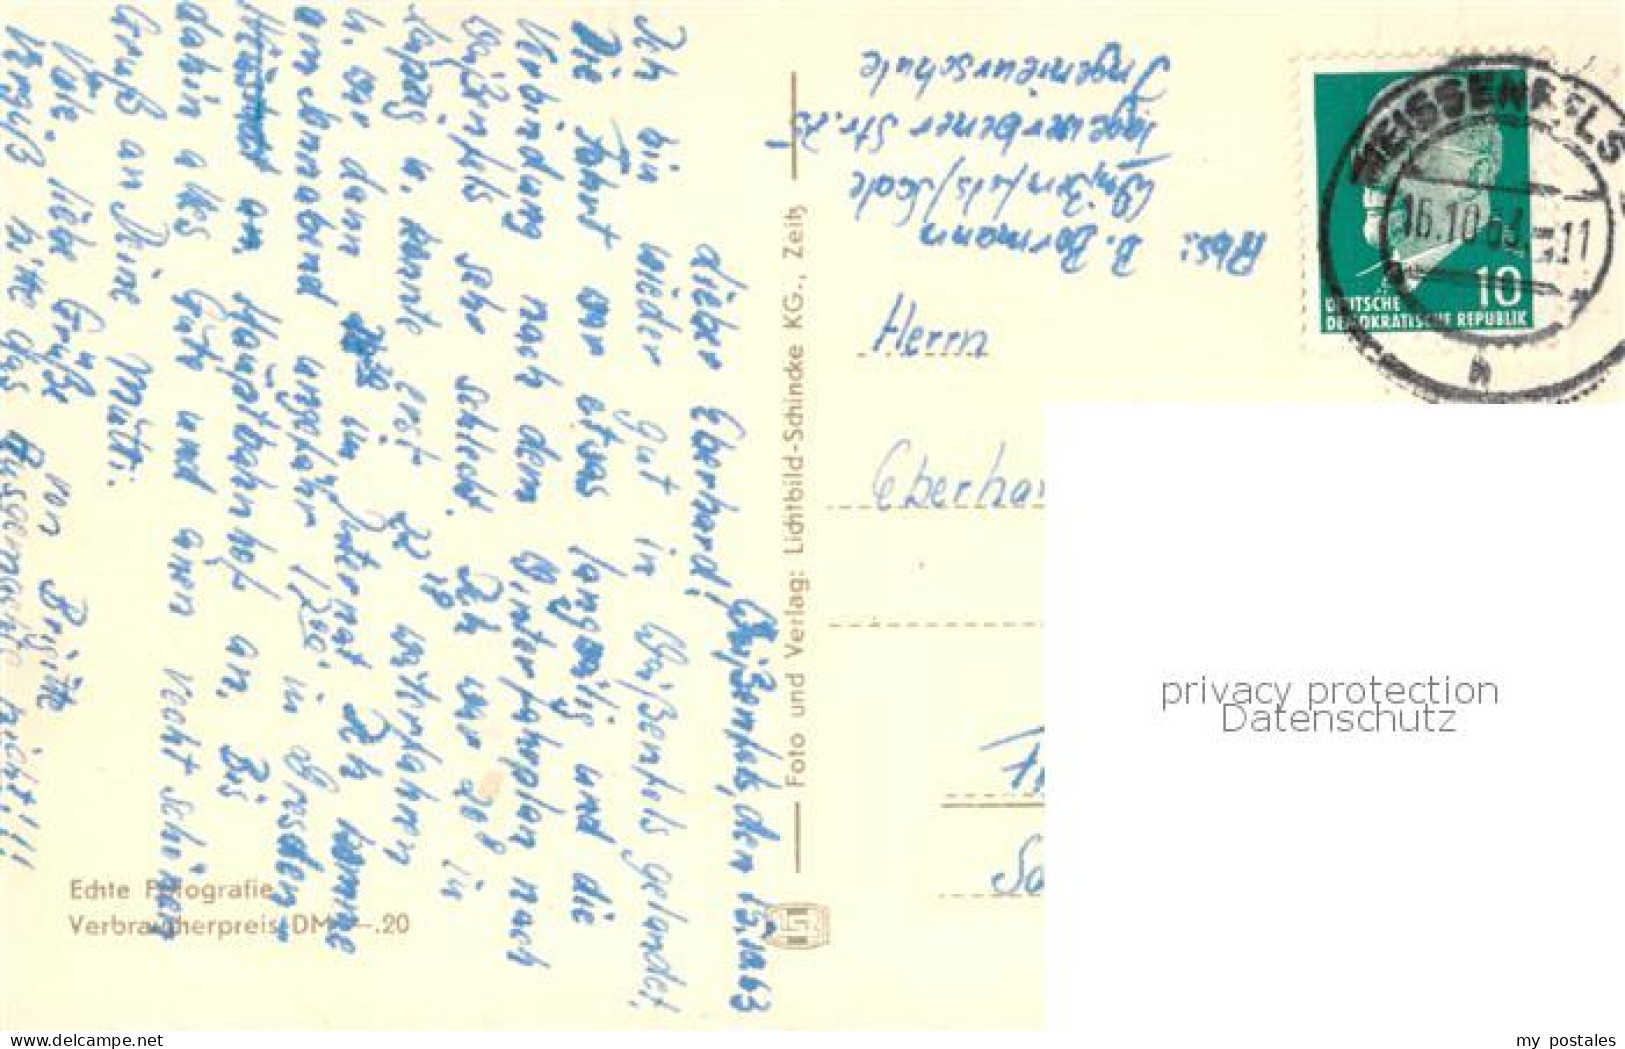 Weißenfels, den 15.10.63
Lieber Eberhard!
Ich bin wieder gut in Weißenfels gelandet.
Die Fahrt war etwas langweilig und die
Verbindung nach dem Winterfahrplan nach
Weißenfels sehr schlecht. Ich war 20⁰⁰ in
Leipzig u. konnte erst 22¹⁰ weiterfahren
u. war dann im Internat. Ich komme
am Sonnabend ungefähr in Dresden-
Hauptbahnhof an. Bis
dahin alles Gute und einen recht schönen
Gruß an Deine Mutti.
Viele liebe Grüße von Brigitte
Vergiß bitte das Ausgemachte nicht!!!
Foto und Verlag: Lichtbild-Schincke KG., Zeitz
Echte Fotografie
Verbraucherpreis DM —.20
Abs.:
B. Bormann
Weißenfels/Saale
Tagewerbener Str.
Ingenieurschule
WEISSENFELS
16.10.63.-11
h
10
DEUTSCHE
DEMOKRATISCHE REPUBLIK
Herrn
privacy protection
Datenschutz
www.delcampe.net
my postales